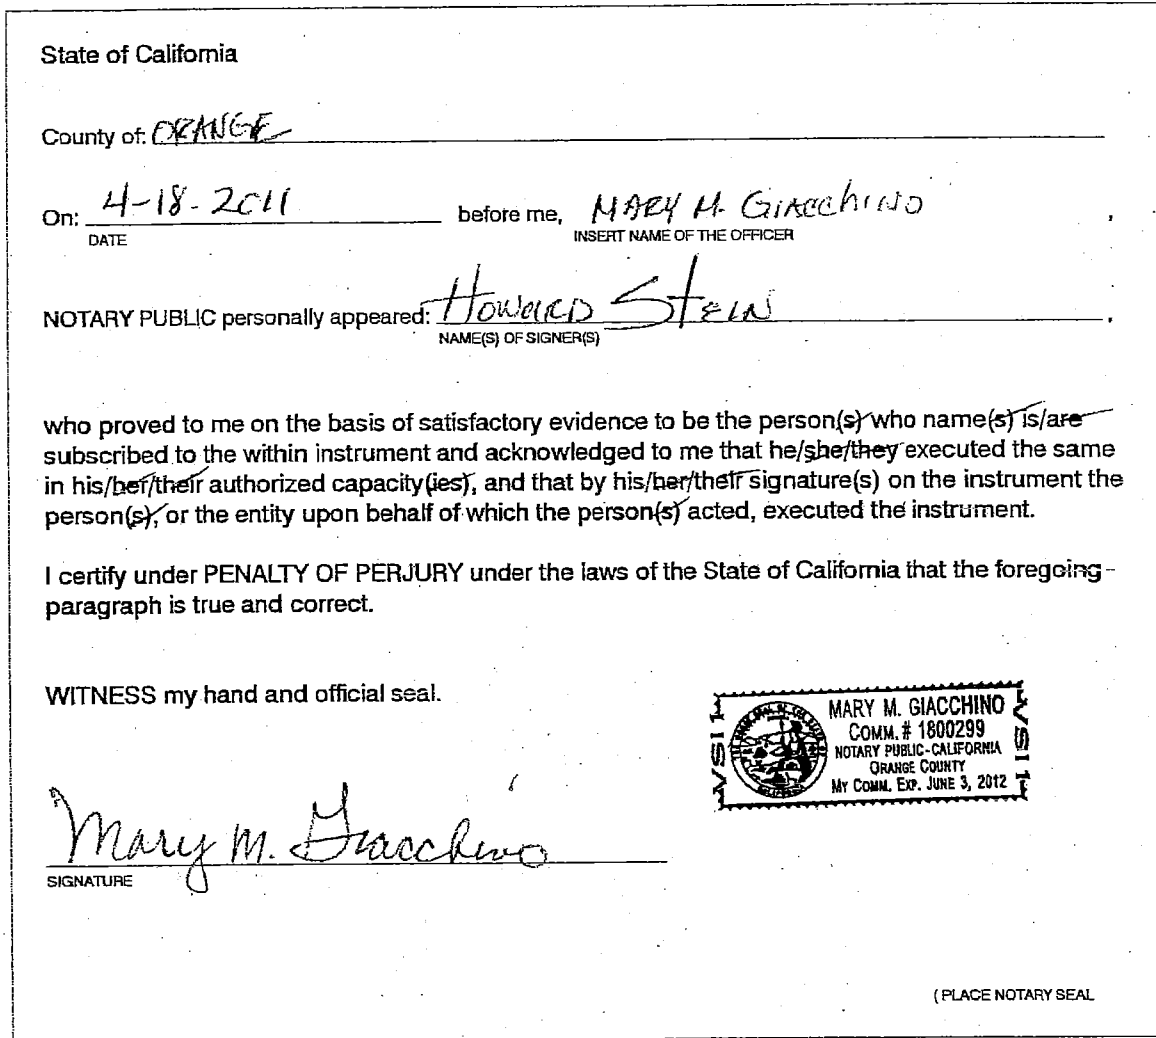 State of California
County of: ORANGE
On: 4-18-2011 before me, MARY M. GIACCHINO,
DATE INSERT NAME OF THE OFFICER
NOTARY PUBLIC personally appeared: HOWARD STEIN,
NAME(S) OF SIGNER(S)
who proved to me on the basis of satisfactory evidence to be the person(s) who name(s) is/are
subscribed to the within instrument and acknowledged to me that he/she/they executed the same
in his/her/their authorized capacity(ies), and that by his/her/their signature(s) on the instrument the
person(s), or the entity upon behalf of which the person(s) acted, executed the instrument.
I certify under PENALTY OF PERJURY under the laws of the State of California that the foregoing
paragraph is true and correct.
WITNESS my hand and official seal.
MARY M. GIACCHINO
COMM. # 1800299
NOTARY PUBLIC-CALIFORNIA
ORANGE COUNTY
MY COMM. EXP. JUNE 3, 2012
VSI 1
VSI 1
Mary M. Giacchino
SIGNATURE
(PLACE NOTARY SEAL